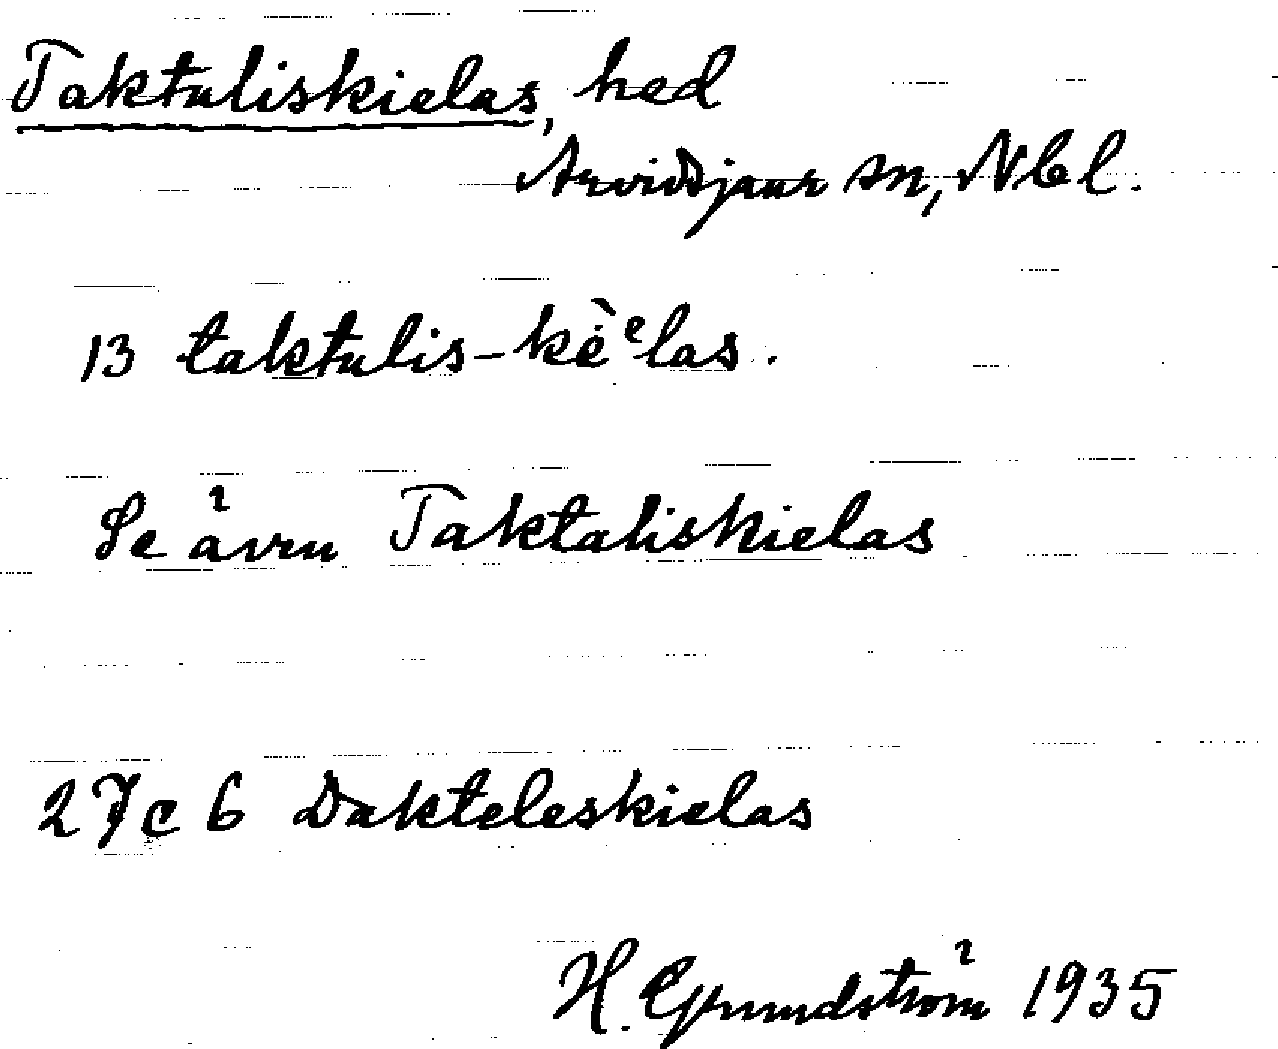 Taktuliskielas, hed
Arvidsjaur sn, Nbl.
13 taktulis-kè̇ᵉlas.
Se även Taktaliskielas
27c 6 Dakteleskielas
H. Grundström 1935